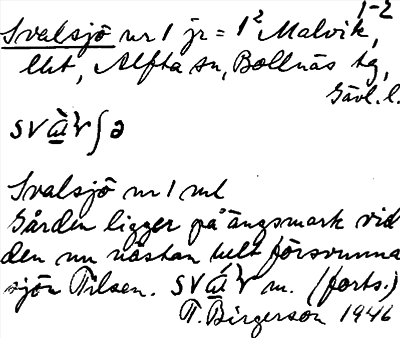 1-2
Svalsjö nr 1 jr = 1² Malvik,
lht, Alfta sn, Bollnäs tg,
Gävl. l.
Svalsjö nr 1 ml
Gården ligger på ängsmark vid
den nu nästan helt försvunna
sjön Tilsen. m. (forts.)
T. Birgerson 1946